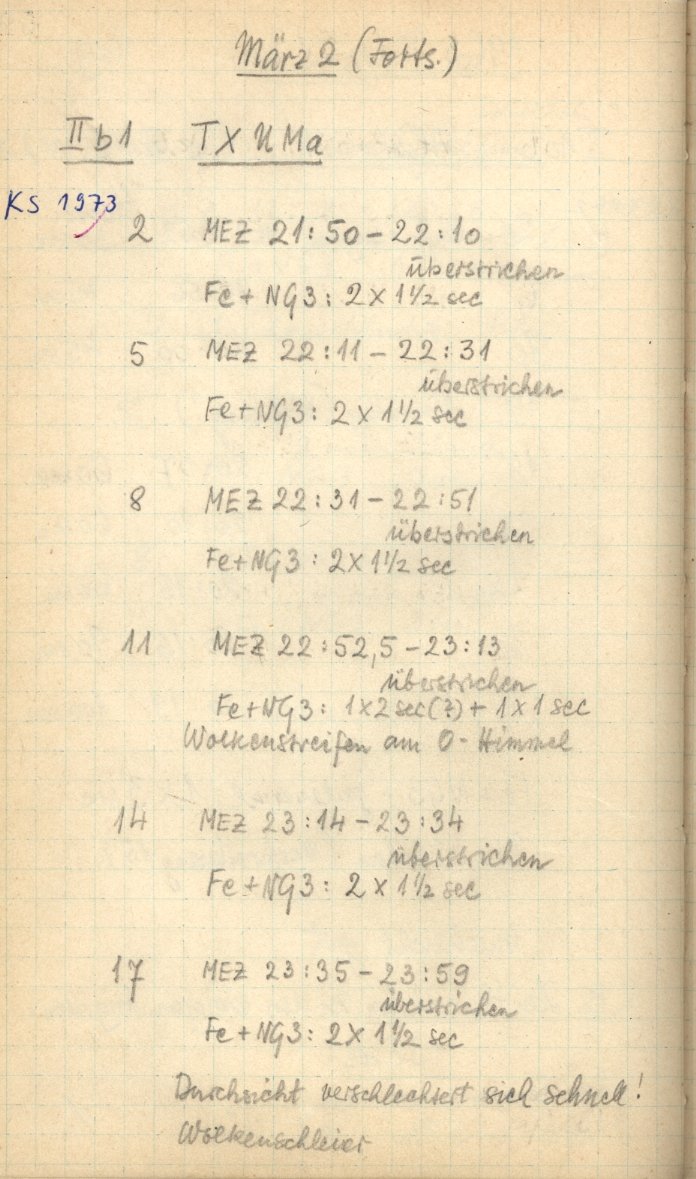 März 2 (Forts.)
II b 1 TX UMa
KS 1973
2 MEZ 21:50 - 22:10
überstrichen
Fe + NG3: 2 x 1 1/2 sec
5 MEZ 22:11 - 22:31
überstrichen
Fe+NG3: 2 x 1 1/2 sec
8 MEZ 22:31 - 22:51
überstrichen
Fe+NG3: 2 x 1 1/2 sec
11 MEZ 22:52,5 - 23:13
überstrichen
Fe+NG3: 1x2 sec(?) + 1x1 sec
Wolkenstreifen am O-Himmel
14 MEZ 23:14 - 23:34
überstrichen
Fe+NG3: 2 x 1 1/2 sec
17 MEZ 23:35 - 23:59
überstrichen
Fe+NG3: 2 x 1 1/2 sec
Durchsicht verschlechtert sich schnell!
Wolkenschleier